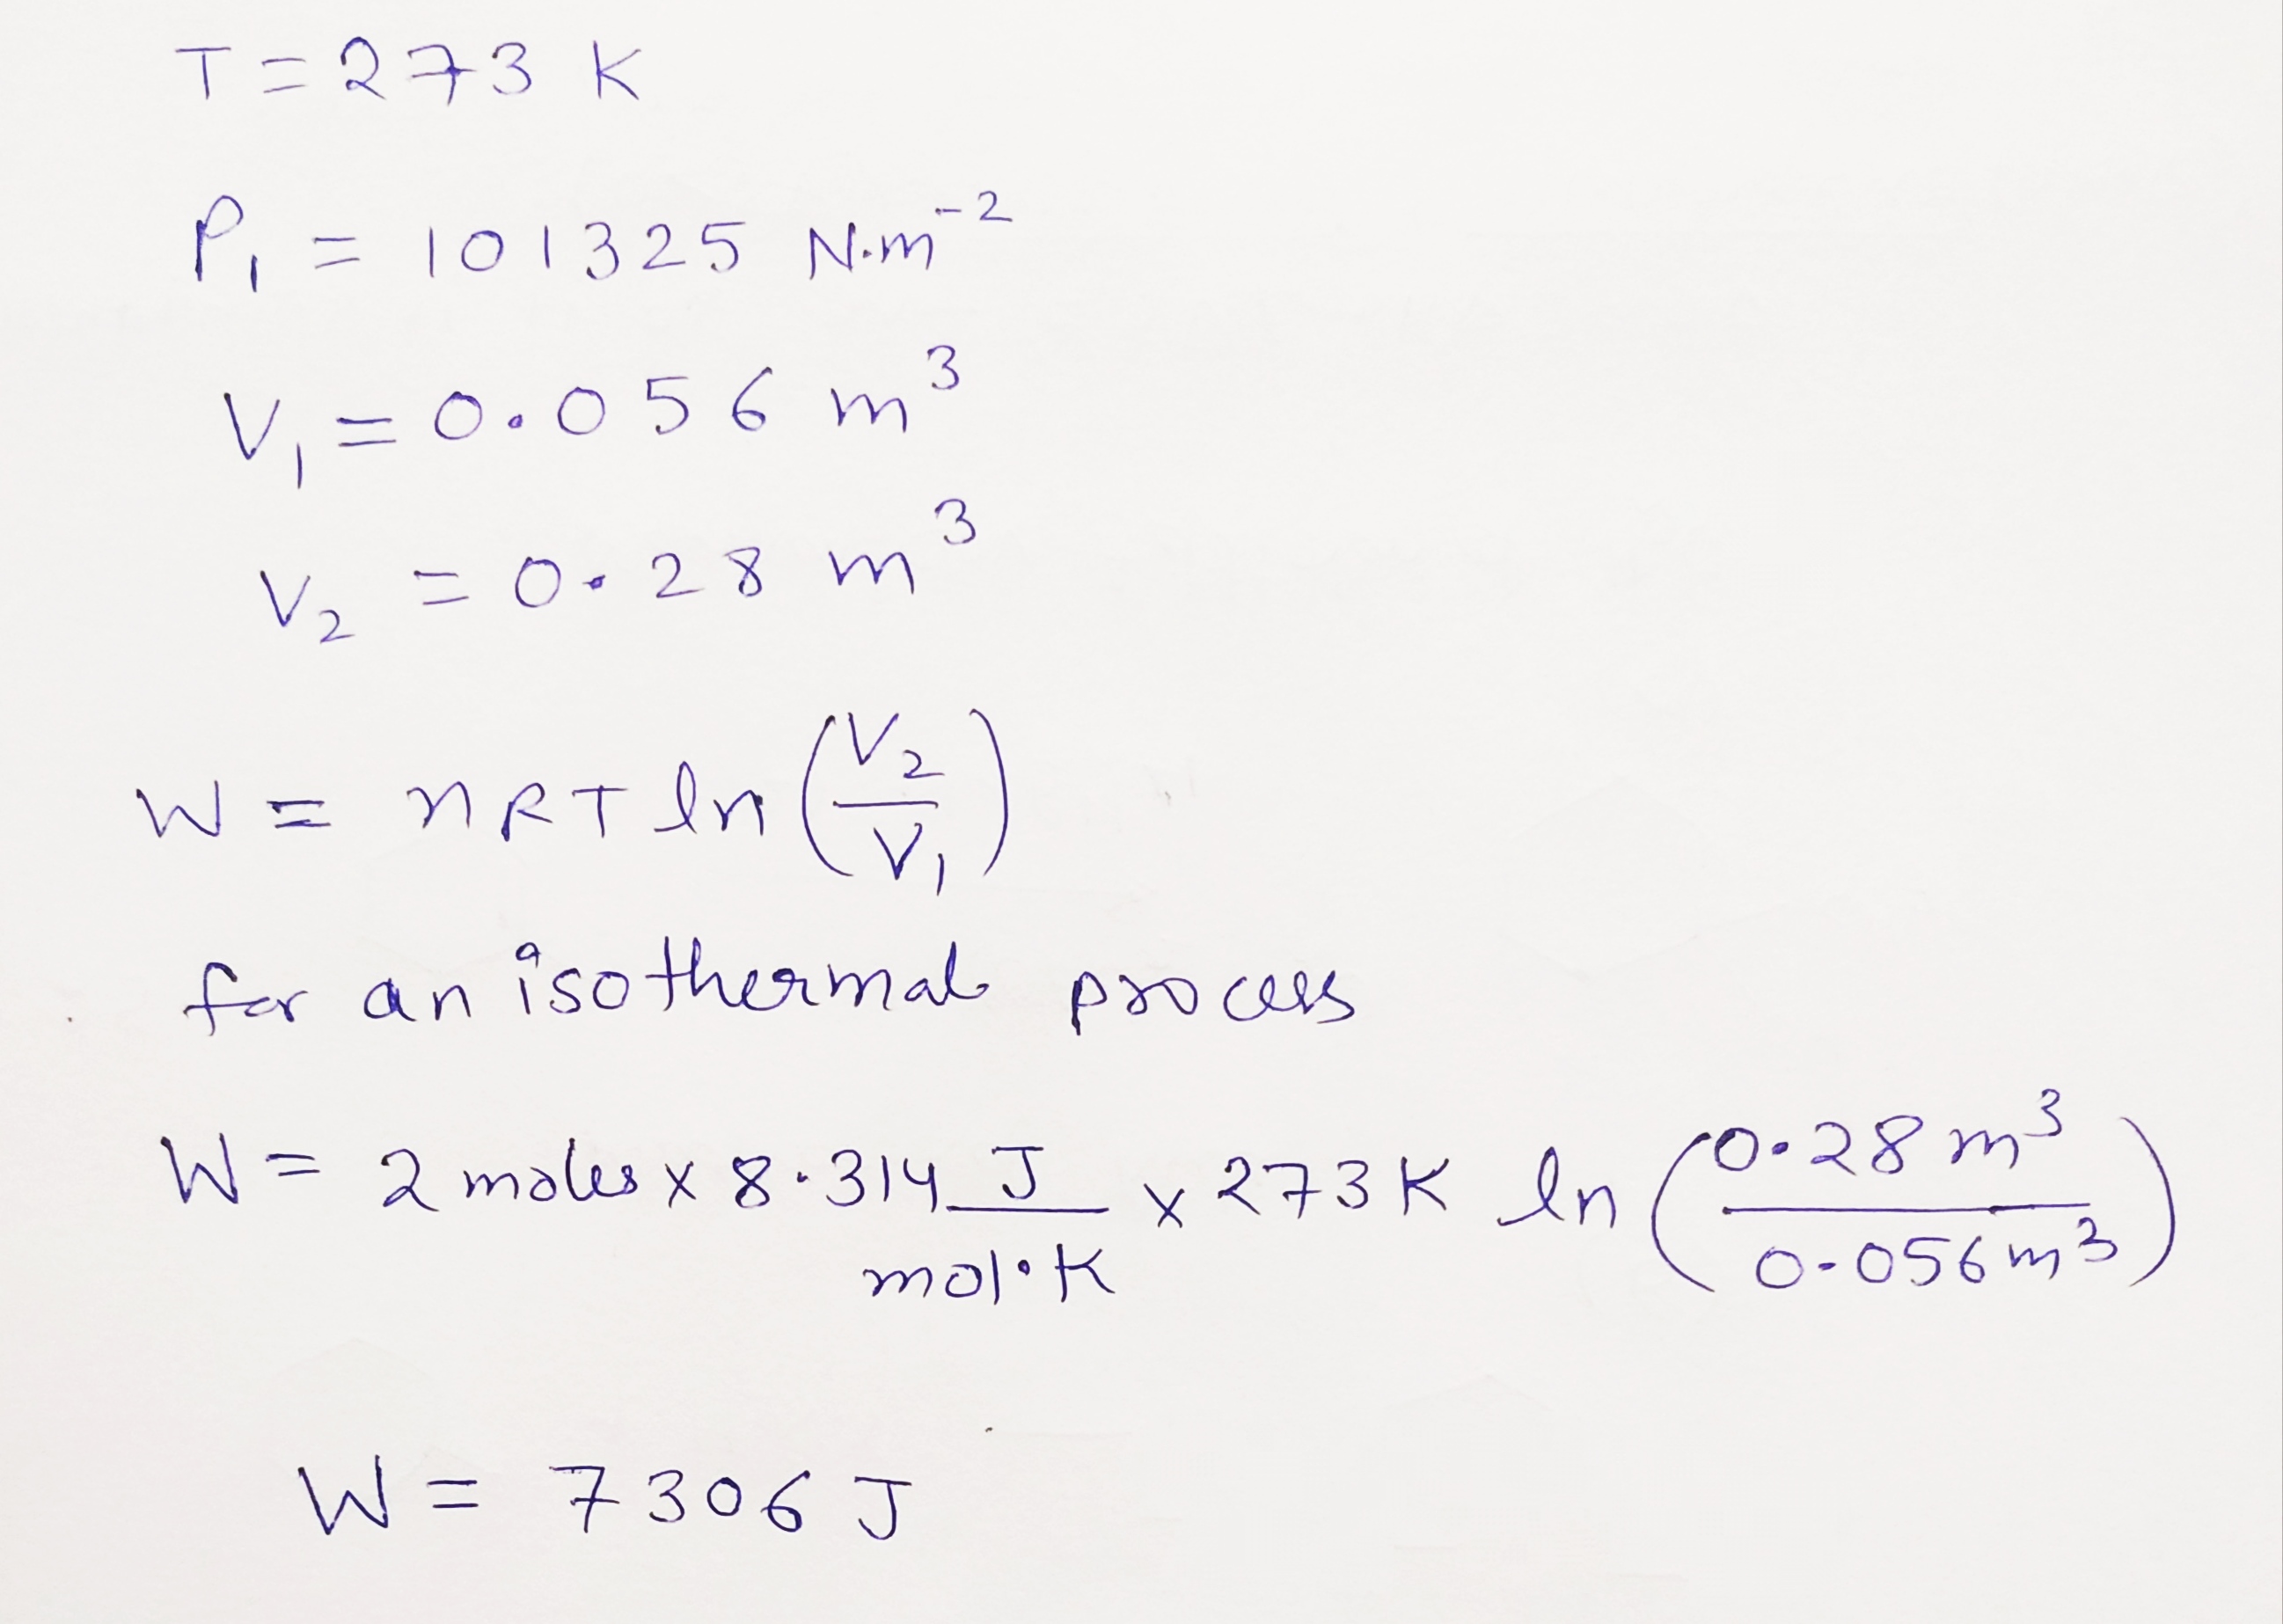 T = 273 K
P₁ = 101325 N.m⁻²
V₁ = 0.056 m³
V₂ = 0.28 m³
W = nRT ln(V₂/V₁)
for an isothermal process
W = 2 moles x 8.314 J/mol.K x 273 K ln(0.28 m³/0.056 m³)
W = 7306 J